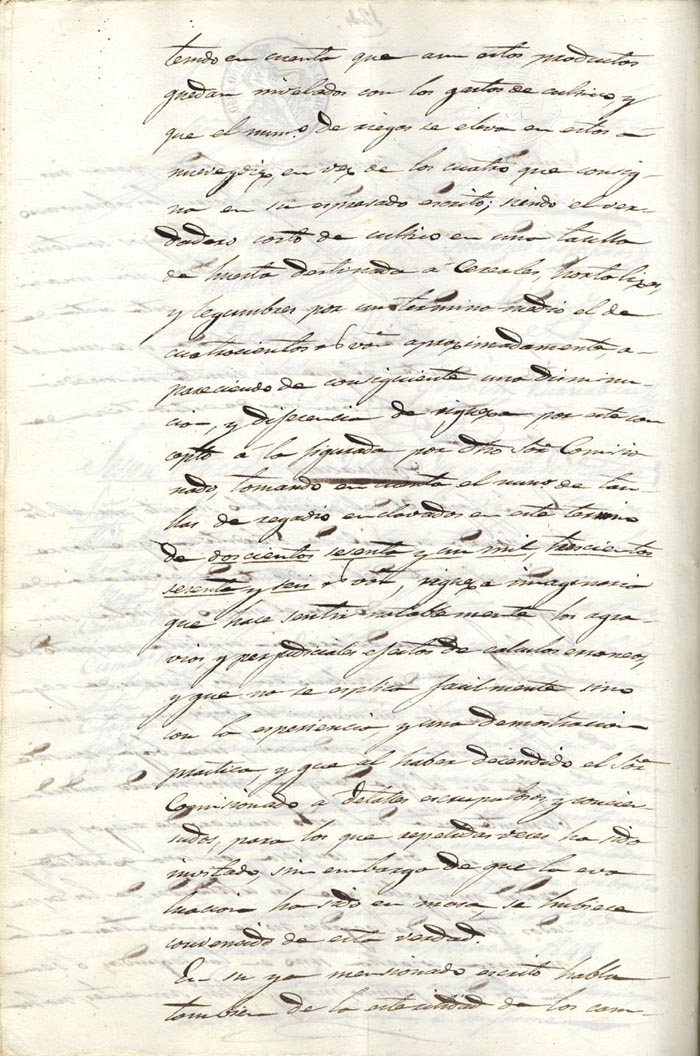 tendo en cuenta que aun estos productos
quedan nivelados con los gastos de cultivo, y
que el num.o de riegos se eleva en estos a
nueve y diez, en vez de los cuatro que consig-
na en su espresado escrito; siendo el ver-
dadero costo de cultivo en una taulla
de huerta destinada á Cereales, hortalizas,
y legumbres por un termino medio el de
cuatrocientos rs vn aproximadamente a-
pareciendo de consiguiente una disminu-
cion, y diferencia de riqueza por este con
cepto á la figurada por dho Sor Comisio
nado, tomando en cuenta el num.o de tau-
llas de regadio enclavados en este termino
de doscientos sesenta y un mil, trescientos
sesenta y seis rs vn, riqueza imaginaria
que hace sentir notablemente los agra-
vios y perjudiciales efectos de calculos erroneos,
y que no se esplica facilmente sino
con la esperiencia, y una demostracion
practica, y que al haber decendido el Sor
Comisionado a detalles escrupulosos, y concien-
sudos, para los que repetidas veces ha sido
invitado, sin embargo de que la eva
luacion ha sido en masa, se hubiese
convencido de esta verdad.
En su ya mencionado escrito habla
tambien de la esterilidad de los cam-